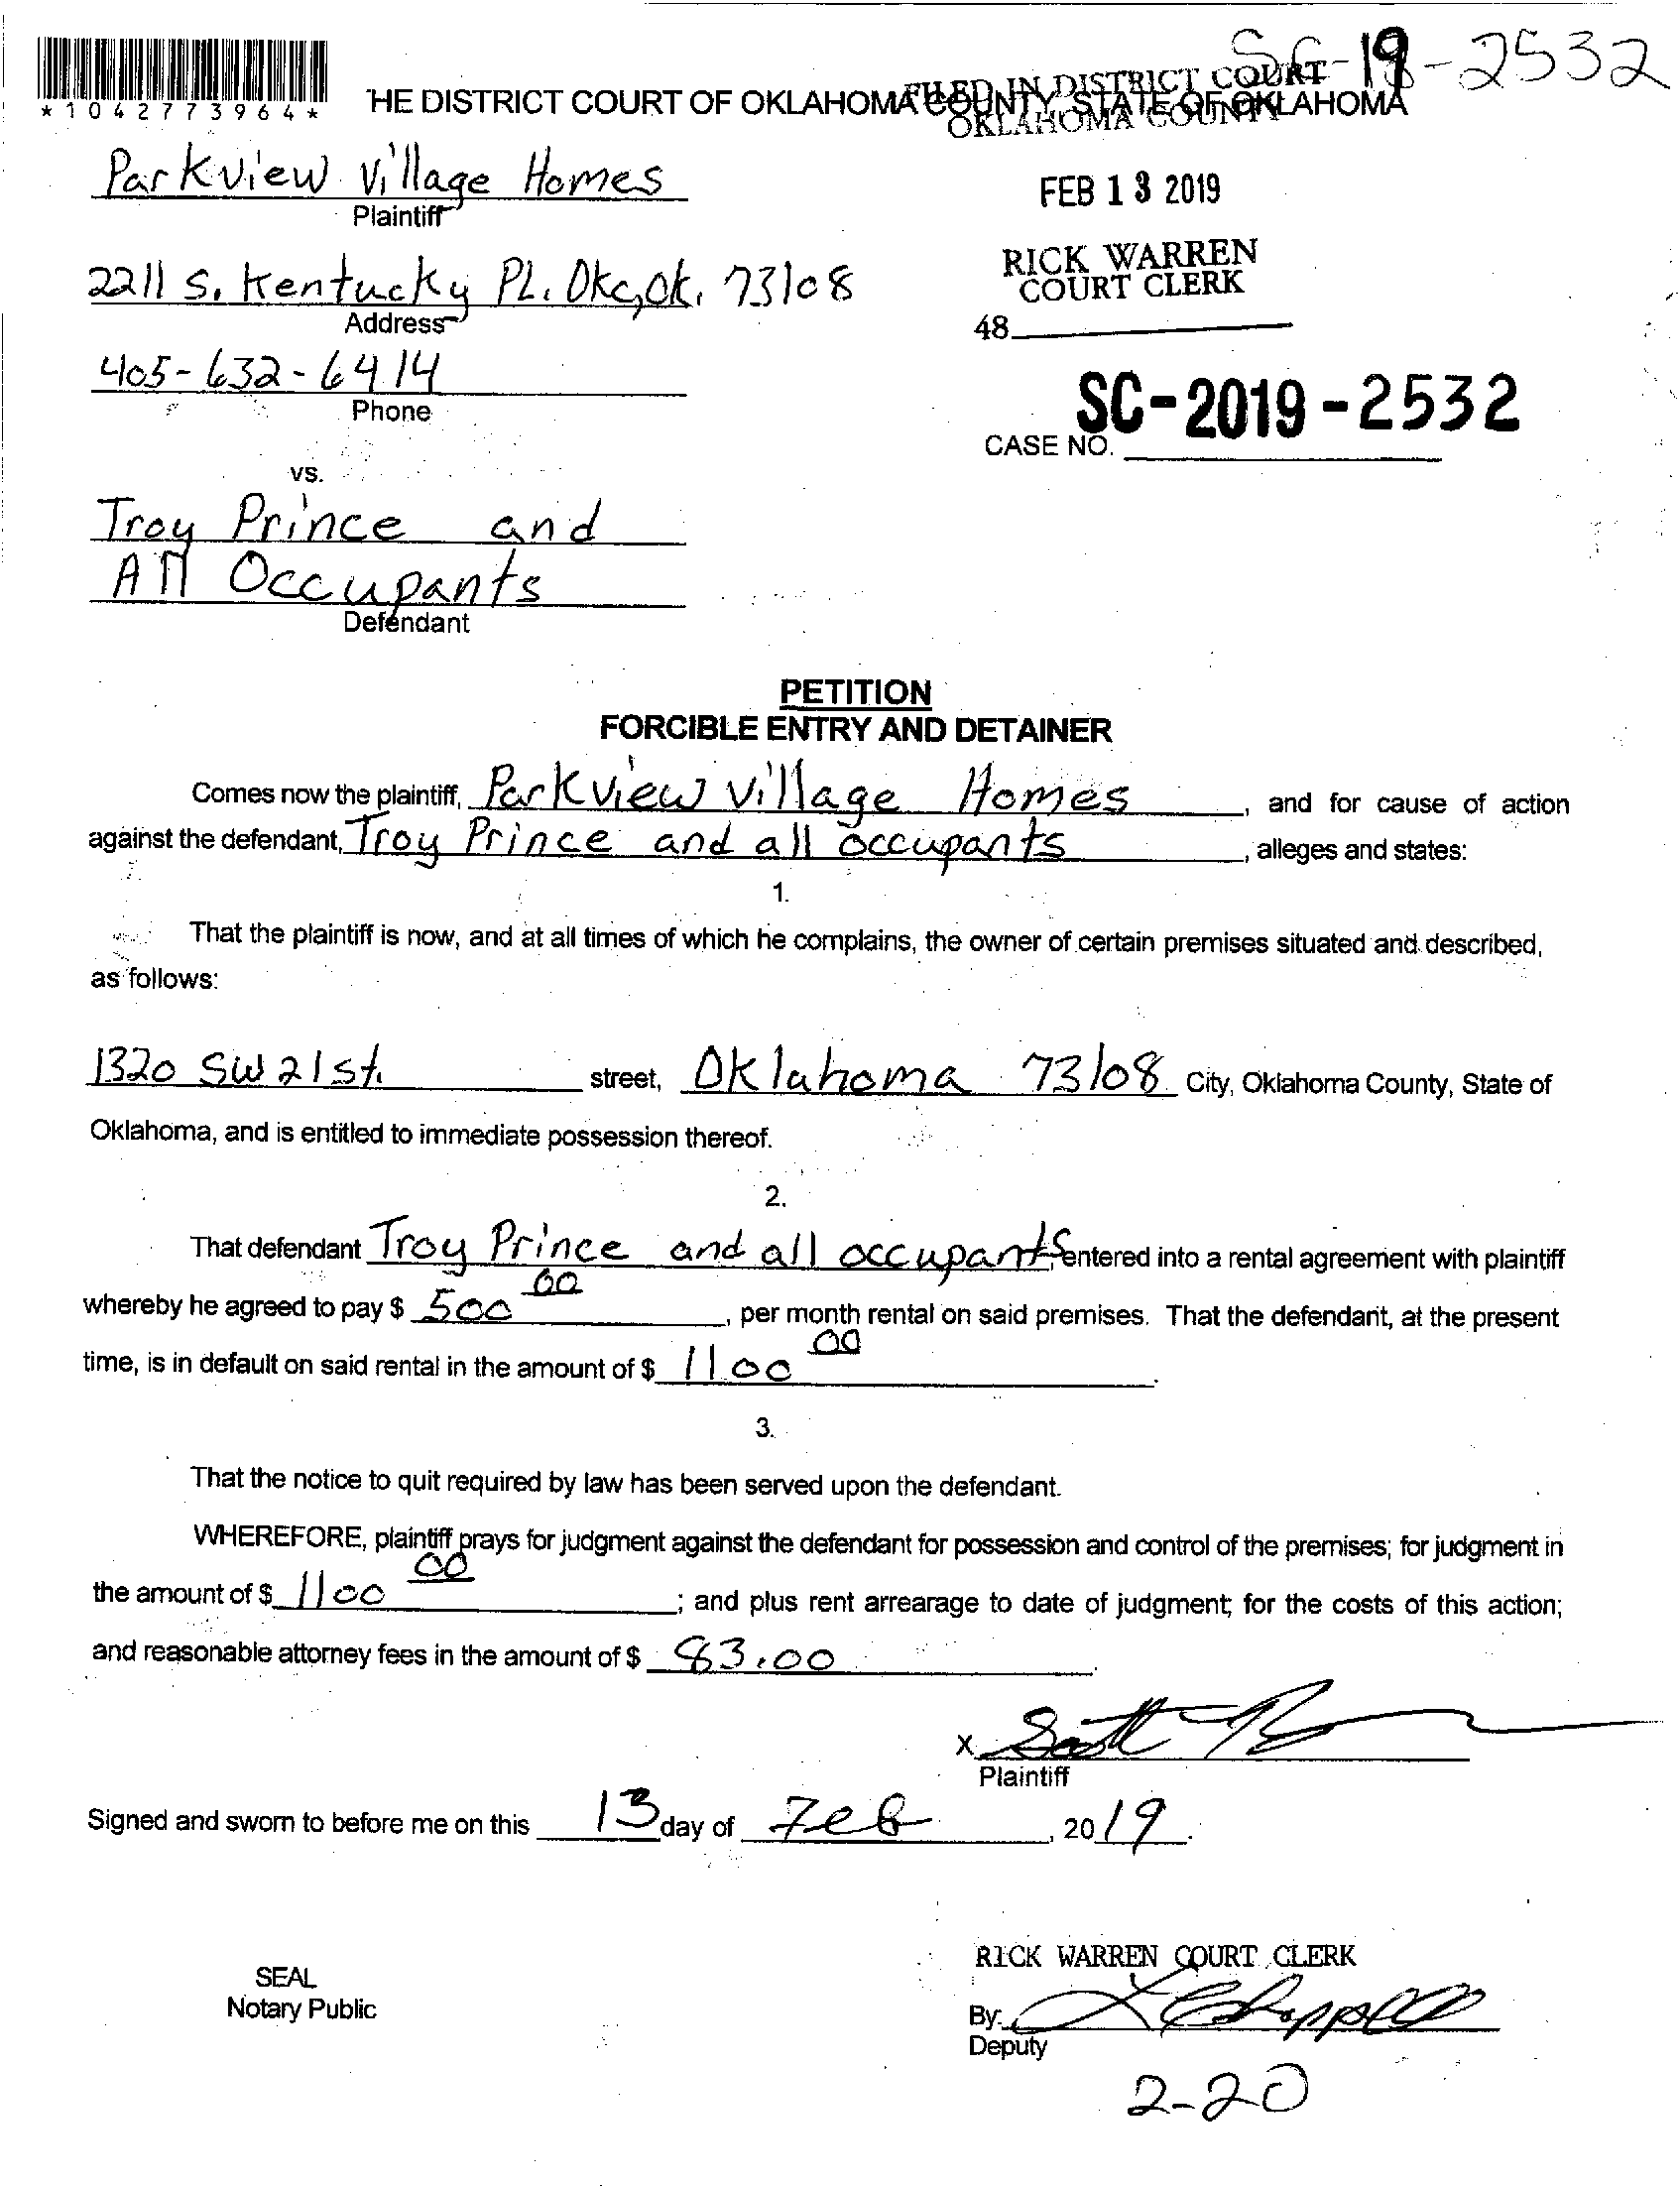 SC-19-2532
*1042773964*
HE DISTRICT COURT OF OKLAHOMA COUNTY, STATE OF OKLAHOMA
FILED IN DISTRICT COURT
OKLAHOMA COUNTY
Parkview Village Homes
Plaintiff
FEB 13 2019
2211 S. Kentucky Pl. Okc, Ok. 73108
Address
RICK WARREN
COURT CLERK
48
405-632-6414
Phone
SC-2019-2532
CASE NO.
vs.
Troy Prince and
All Occupants
Defendant
PETITION
FORCIBLE ENTRY AND DETAINER
Comes now the plaintiff, Parkview Village Homes, and for cause of action
against the defendant, Troy Prince and all occupants, alleges and states:
1.
That the plaintiff is now, and at all times of which he complains, the owner of certain premises situated and described,
as follows:
1320 SW 21st. street, Oklahoma 73108 City, Oklahoma County, State of
Oklahoma, and is entitled to immediate possession thereof.
2.
That defendant Troy Prince and all occupants, entered into a rental agreement with plaintiff
whereby he agreed to pay $ 500 00, per month rental on said premises. That the defendant, at the present
time, is in default on said rental in the amount of $ 1100 00.
3.
That the notice to quit required by law has been served upon the defendant.
WHEREFORE, plaintiff prays for judgment against the defendant for possession and control of the premises; for judgment in
the amount of $ 1100 00; and plus rent arrearage to date of judgment; for the costs of this action;
and reasonable attorney fees in the amount of $ 83.00.
x Scott
Plaintiff
Signed and sworn to before me on this 13 day of Feb, 2019.
SEAL
Notary Public
RICK WARREN COURT CLERK
By: L Chappell
Deputy
2-20